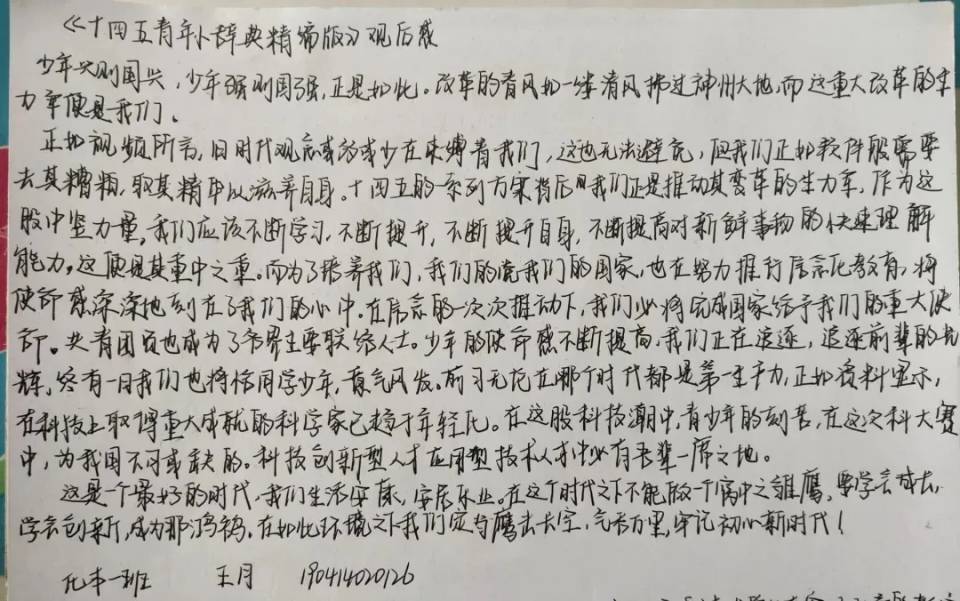 《十四五青年小辞典精编版》观后感
少年兴则国兴，少年强则国强，正是如此。改革的春风如一缕清风拂过神州大地，而这重大改革的主
力军便是我们。
正如视频所言，旧时代观念或多或少在束缚着我们，这也无法避免，但我们正如软件般需要
去其糟粕，取其精华以滋养自身。十四五的系列方案背后我们正是推动其变革的生力军，作为这
股中坚力量，我们应该不断学习，不断提升，不断提升自身，不断提高对新鲜事物的快速理解
能力，这便是其重中之重。而为了培养我们，我们的党我们的国家，也在努力推行信念化教育，将
使命感深深地刻在了我们的心中。在信念的一次次推动下，我们必将完成国家给予我们的重大使
命。共青团员也成为了各界主要联络人士。少年的使命感不断提高，我们正在追逐，追逐前辈的光
辉，终有一日我们也将恰同学少年，意气风发。学习无论在哪个时代都是第一生产力，正如资料显示，
在科技上取得重大成就的科学家已趋于年轻化。在这股科技潮中，青少年的刻苦，在这次科大赛
中，为我国不可或缺的。科技创新型人才应用型技术人才中必有吾辈一席之地。
这是一个最好的时代，我们生活安康，安居乐业。在这个时代之下不能做一个窝中之雏鹰，要学会成长，
学会创新，成为那鸿鹄。在如此环境之下我们定与鹰击长空，气吞万里，牢记初心新时代！
化本一班 王月 190414020126